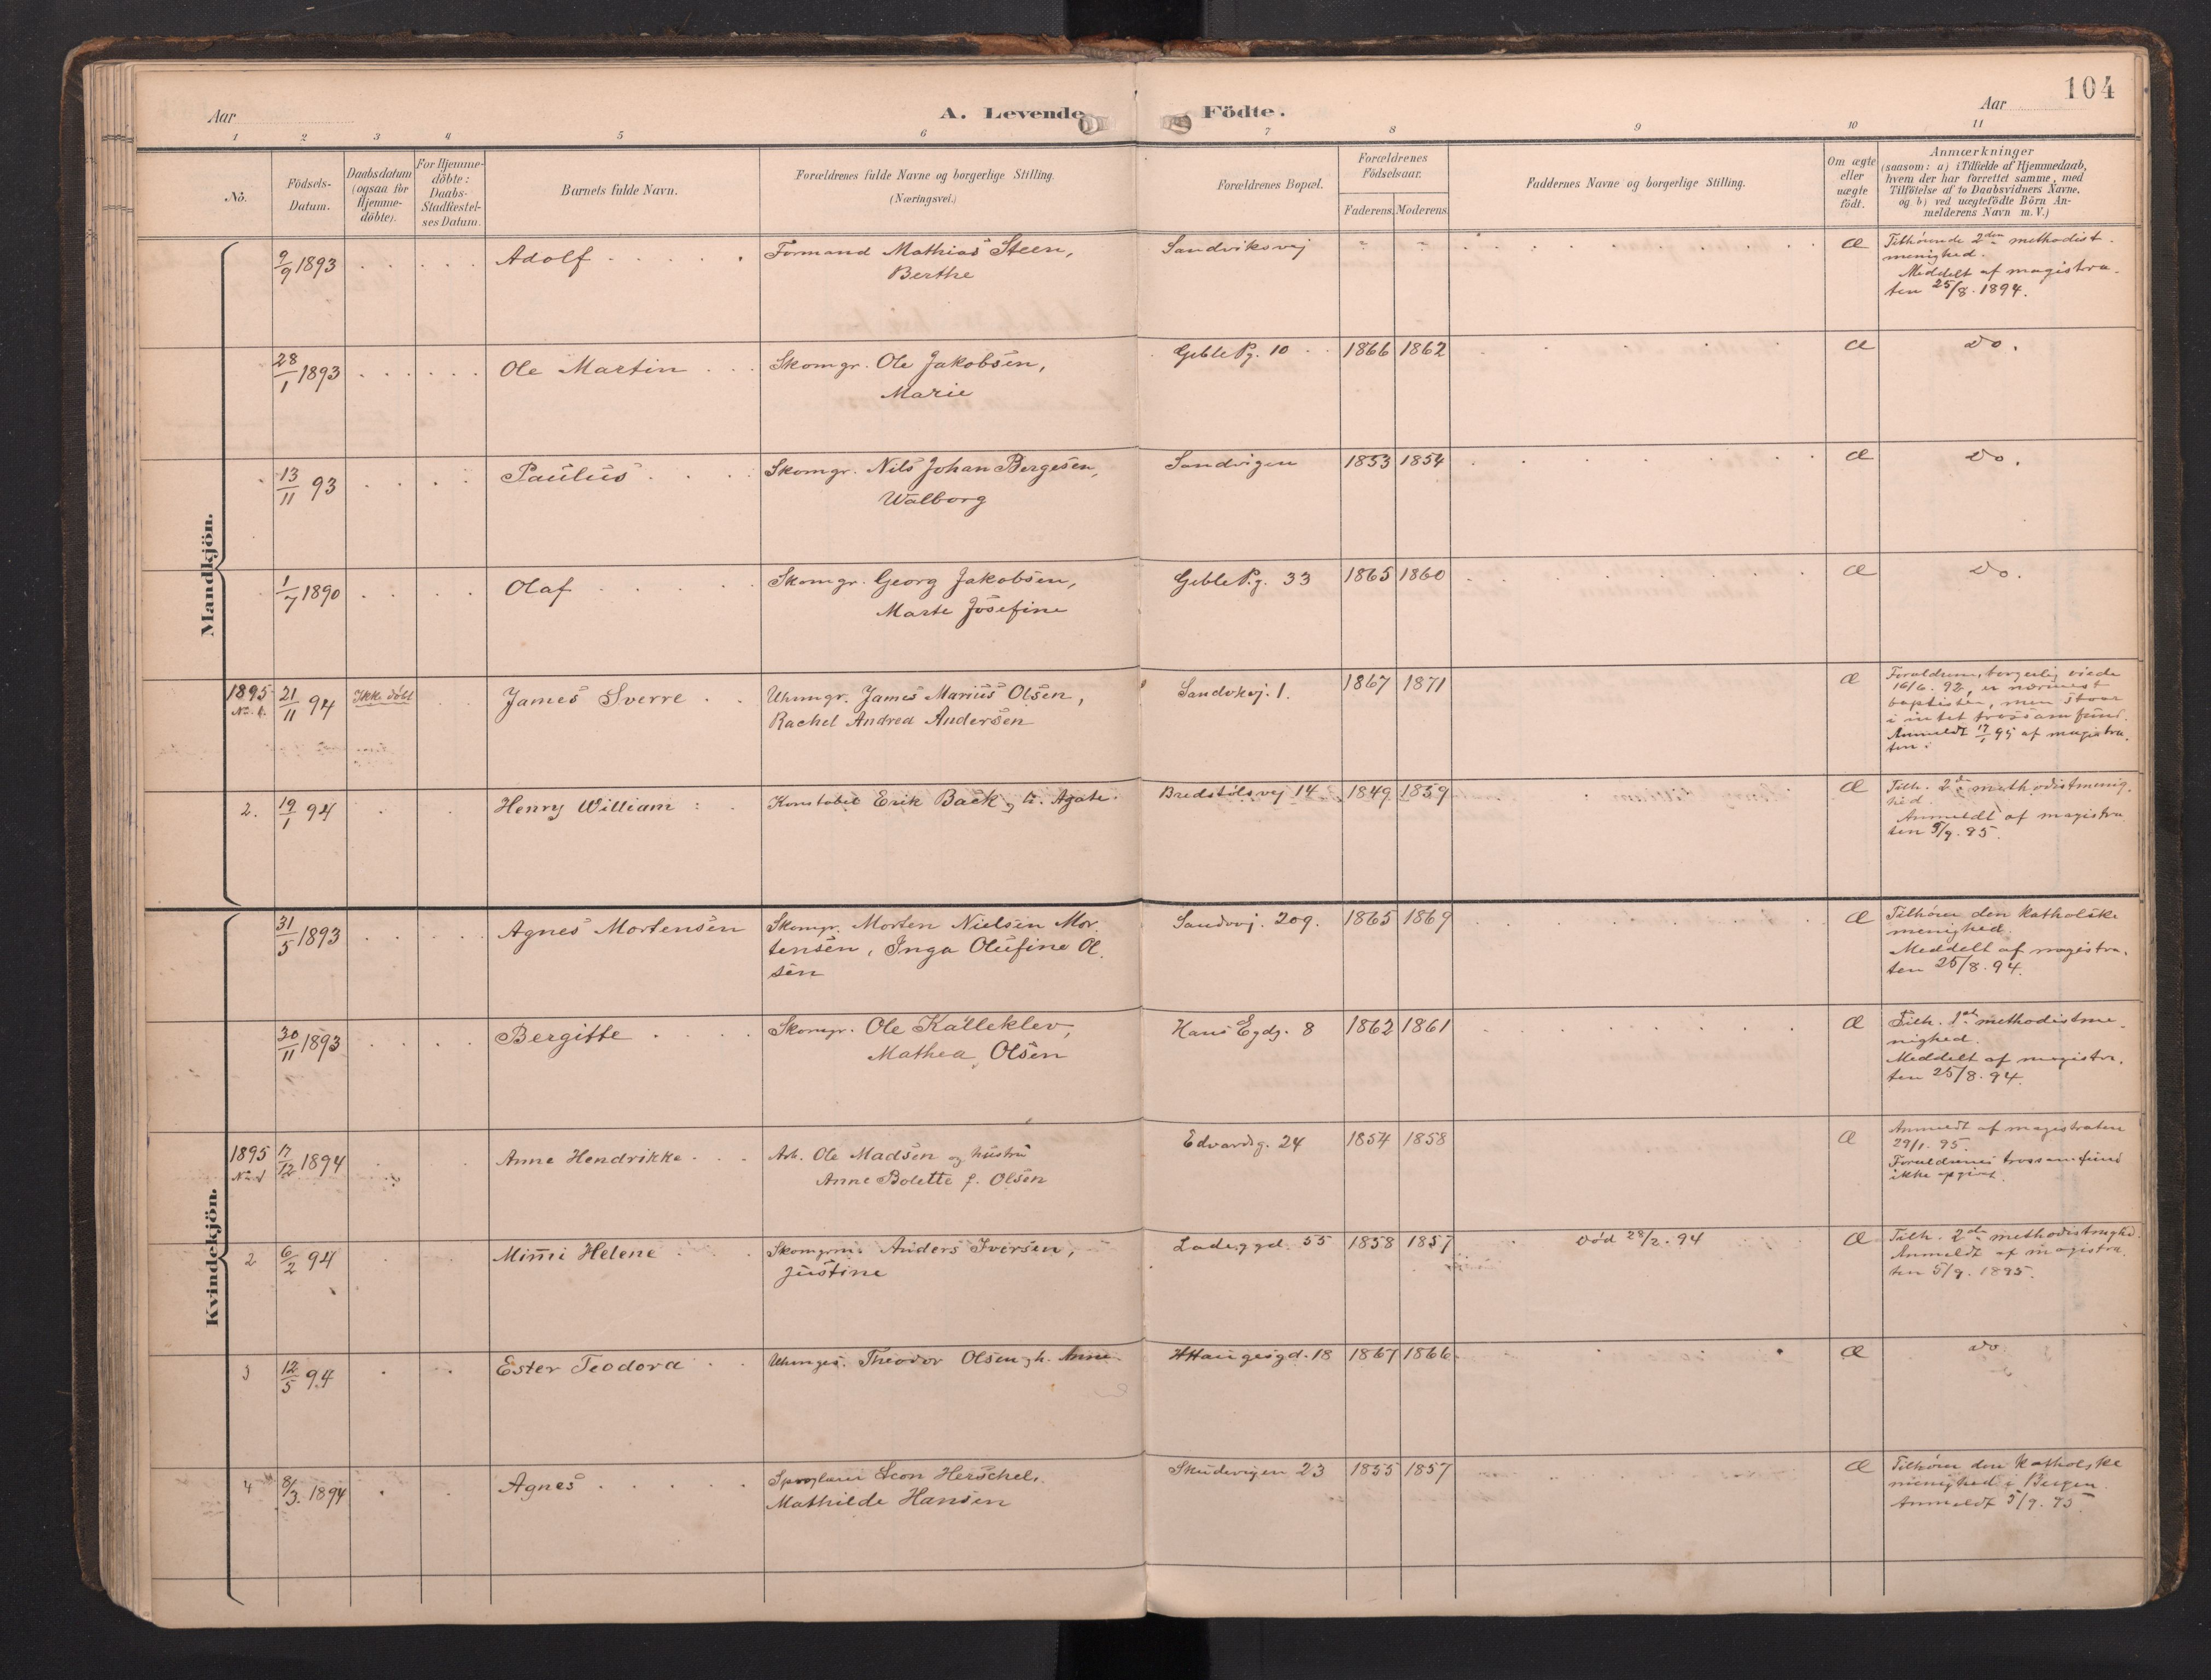 104
Aar
A. Levende Födte.
Aar
1 2 3 4 5 6 7 8 9 10 11
No.
Födsels-
Datum.
Daabsdatum
(ogsaa for
Hjemme-
döbte).
For Hjemme-
döbte:
Daabs-
Stadfæstel-
ses Datum.
Barnets fulde Navn.
Forældrenes fulde Navne og borgerlige Stilling.
(Næringsvei.)
Forældrenes Bopæl.
Forældrenes
Födselsaar.
Faderens. Moderens.
Faddernes Navne og borgerlige Stilling.
Om ægte
eller
uægte
födt.
Anmærkninger
(saasom: a) i Tilfælde af Hjemmedaab,
hvem der har forrettet samme, med
Tilföielse af to Daabsvidners Navne,
og b) ved uægtefödte Börn An-
melderens Navn m. V.)
Mandkjön.
9/9 1893 Adolf Formand Mathias Steen,
Berthe
Sandviksvej Æ
Tilhörende 2den methodist-
menighed.
Meddelt af magistra-
ten 25/8. 1894.
28/1 1893 Ole Martin Skomgr. Ole Jakobsen,
Marie
Geble Pg. 10 1866 1862 Æ Do.
13/11 93 Paulus Skomgr. Nils Johan Bergesen,
Walborg
Sandvigen 1853 1854 Æ Do.
1/7 1890 Olaf Skomgr. Georg Jakobsen,
Marte Josefine
Geble P.g. 33 1865 1860 Æ Do.
1895
No. 1. 21/11 94 Ikke döbt James Sverre Uhrmgr. James Marius Olsen,
Rachel Andrea Andersen
Sandvkvj. 1. 1867 1871 Æ
Forældrene, borgerlig viede
16/6. 92, er nærmest
baptister, men staar
i intet trossamfund.
Anmeldt 17/1 95 af magistra-
ten.
2. 19/1 94 Henry William Konstabel Erik Back, h. Agate.
Bredstölsvej 14 1849 1859 Æ
Tilh. 2den methodistmenig-
hed.
Anmeldt af magistra-
ten 5/9. 95.
Kvindekjön.
31/5 1893 Agnes Mortensen Skomgr. Morten Nielsen Mor-
tensen, Inga Olufine Ol-
sen
Sandvvj. 209. 1865 1869 Æ
Tilhörer den katholske
menighed.
Meddelt af magistra-
ten 25/8. 94.
30/11 1893 Bergitte Skomgr. Ole Kalleklev,
Mathea Olsen
Hans Egdg. 8 1862 1861 Æ
Tilh. 1ste methodistme-
nighed.
Meddelt af magistra-
ten 25/8. 94.
1895
No. 1 17/12 1894 Anne Hendrikke Arb. Ole Madsen og hustru
Anne Bolette f. Olsen
Edvardsg. 24 1854 1858 Æ
Anmeldt af magistraten
29/1. 95.
Forældrenes trossamfund
ikke opgivet.
2 6/2 94 Mimi Helene Skomgrm. Anders Iversen,
Justine
Ladeggd. 55 1858 1857 Död 28/2. 94 Æ
Tilh. 2den methodistmghd.
Anmeldt af magistra-
ten 5/9. 1895.
3 12/5 94 Ester Teodora Uhrmgrs. Theodor Olsen, h. Anne
H Haugesgd. 18 1867 1866 Æ Do
4 8/3. 1894 Agnes Sproglærer Leon Herschel,
Mathilde Hansen
Skudevigen 23 1855 1857 Æ
Tilhörer den katholske
menighed i Bergen.
Anmeldt 5/9. 95